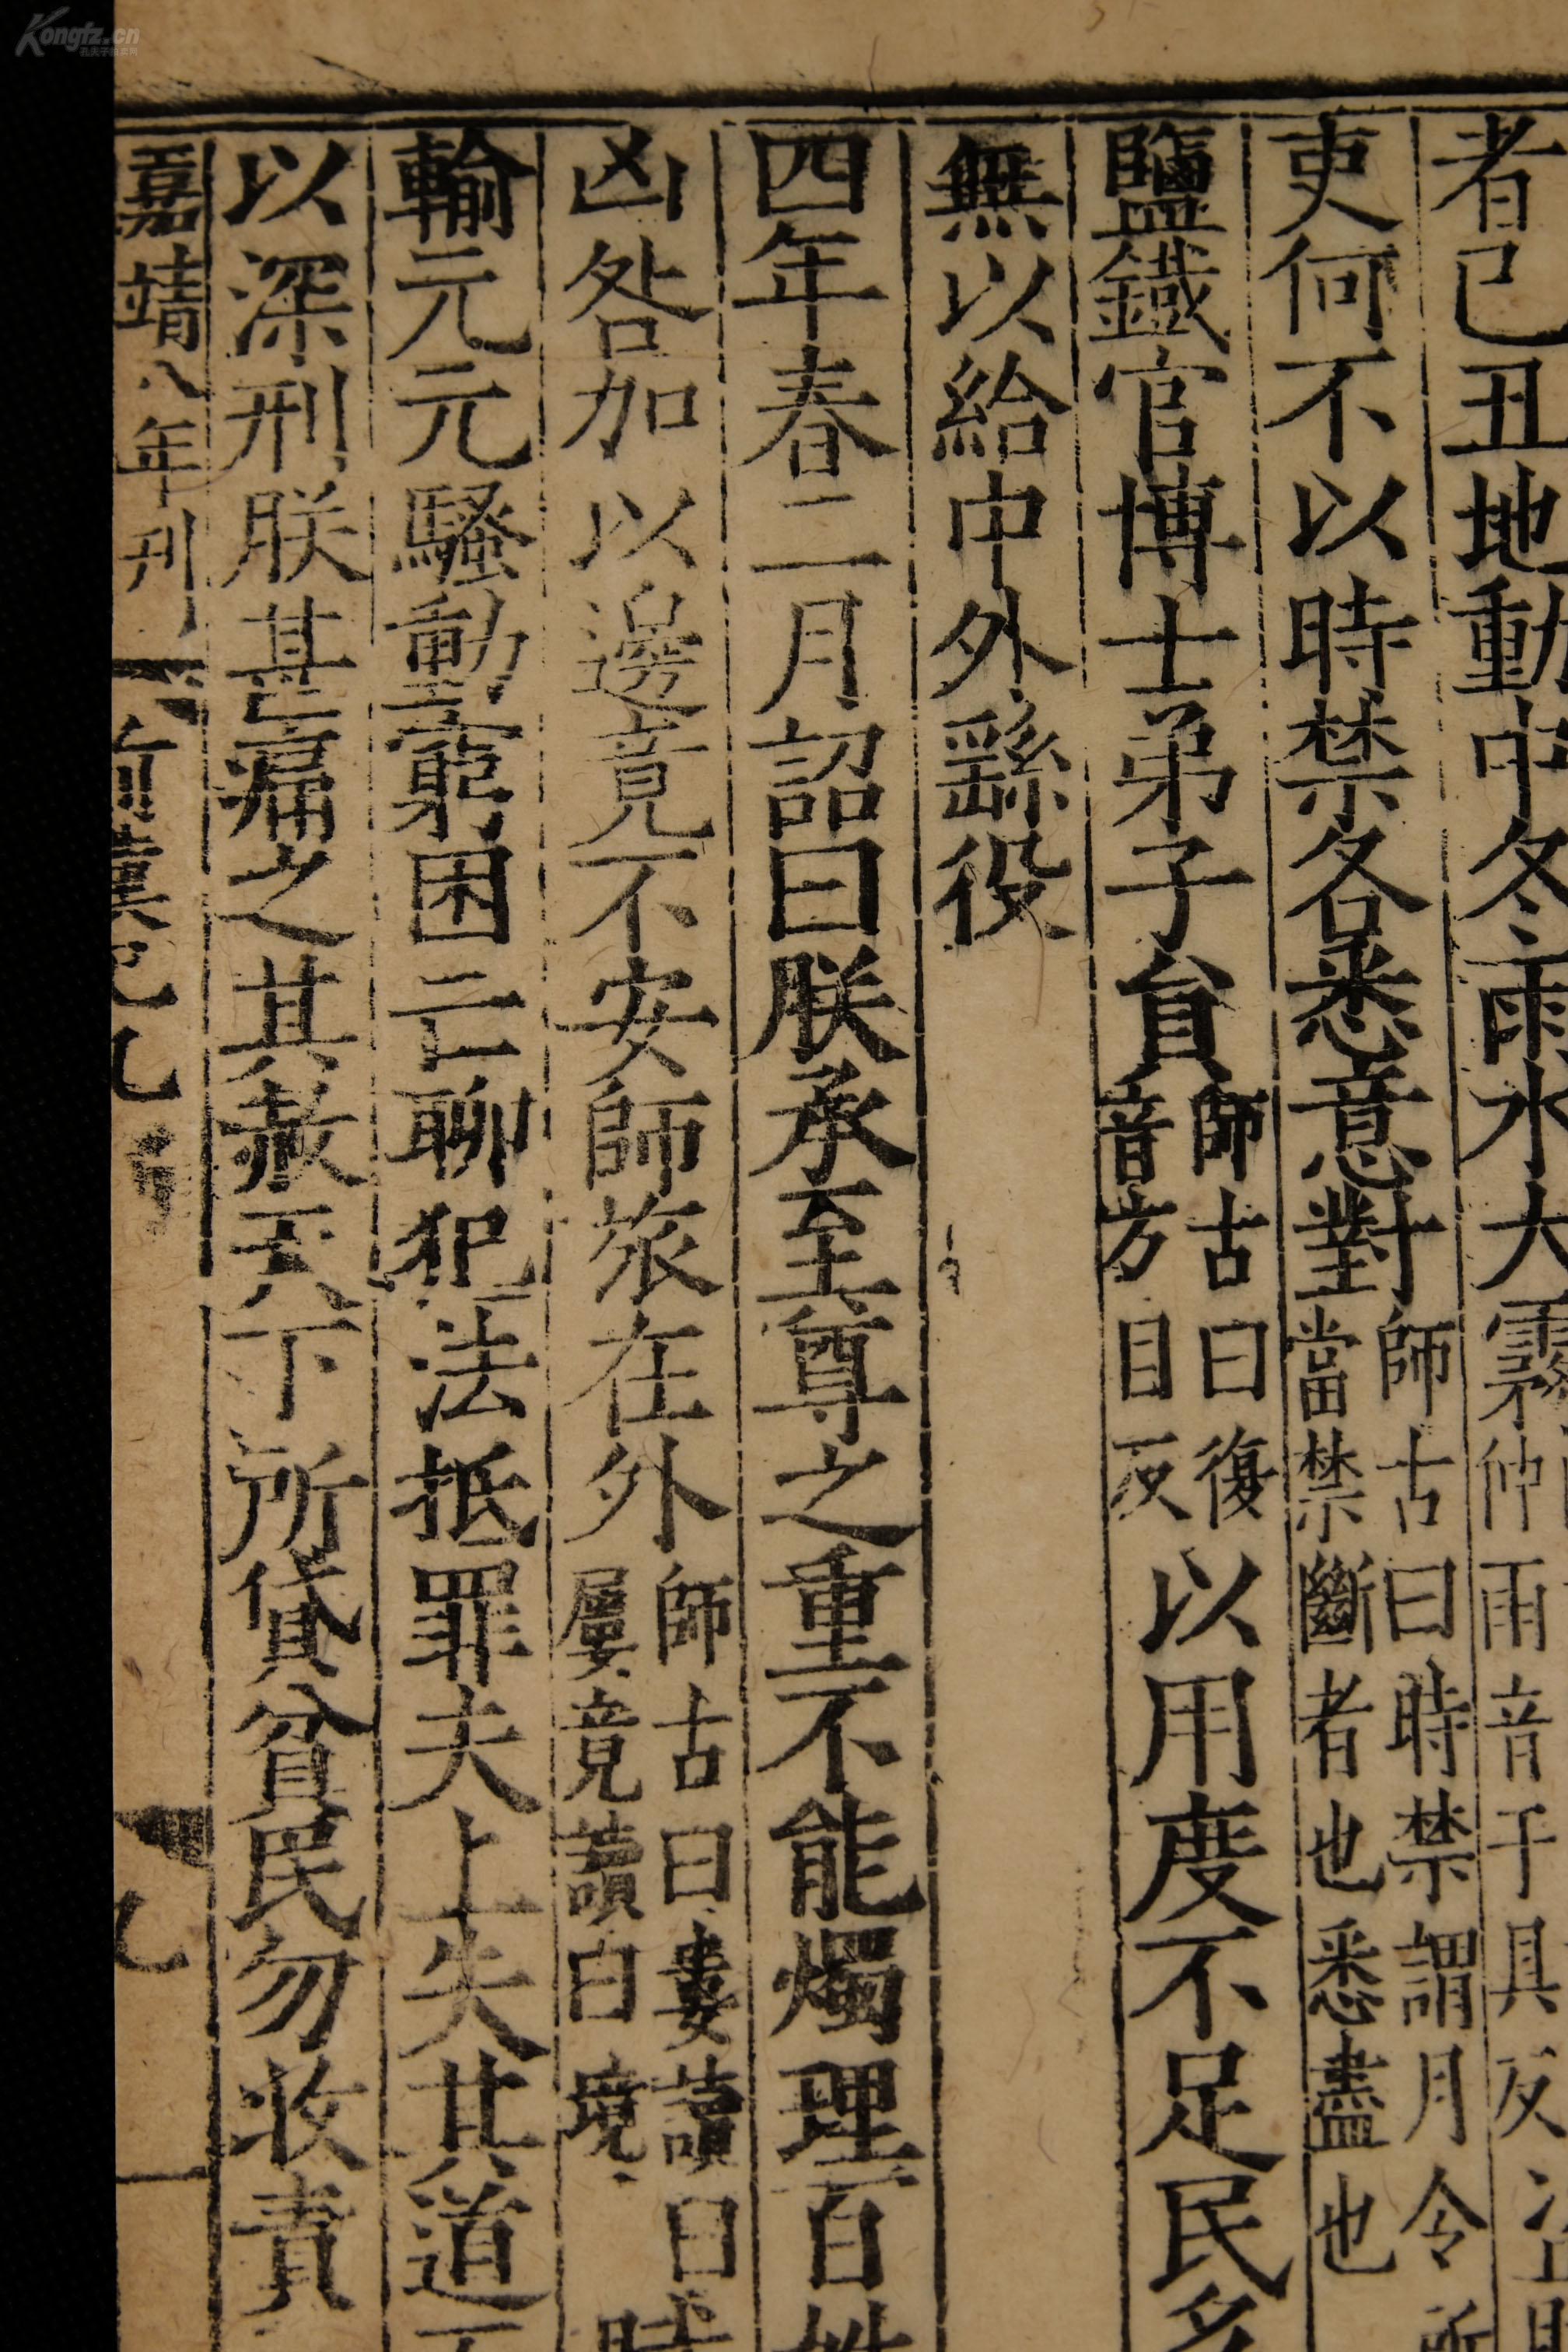 者己丑地動中冬雨水大霧
仲雨音子具反
吏何不以時禁各悉意對師古曰時禁謂月令所
當禁斷者也悉盡也
鹽鐵官博士弟子貟師古曰復
音方目反以用度不足民多
無以給中外繇役
四年春二月詔曰朕承至尊之重不能燭理百姓
凶咎加以邊竟不安師旅在外師古曰婁讀曰
屢竟讀曰境
輸元元騷動窮困亡聊犯法抵罪夫上失其道
以深刑朕甚痛之其赦天下所貸貧民勿收責
嘉靖八年刊
前漢
Kongfz.cn